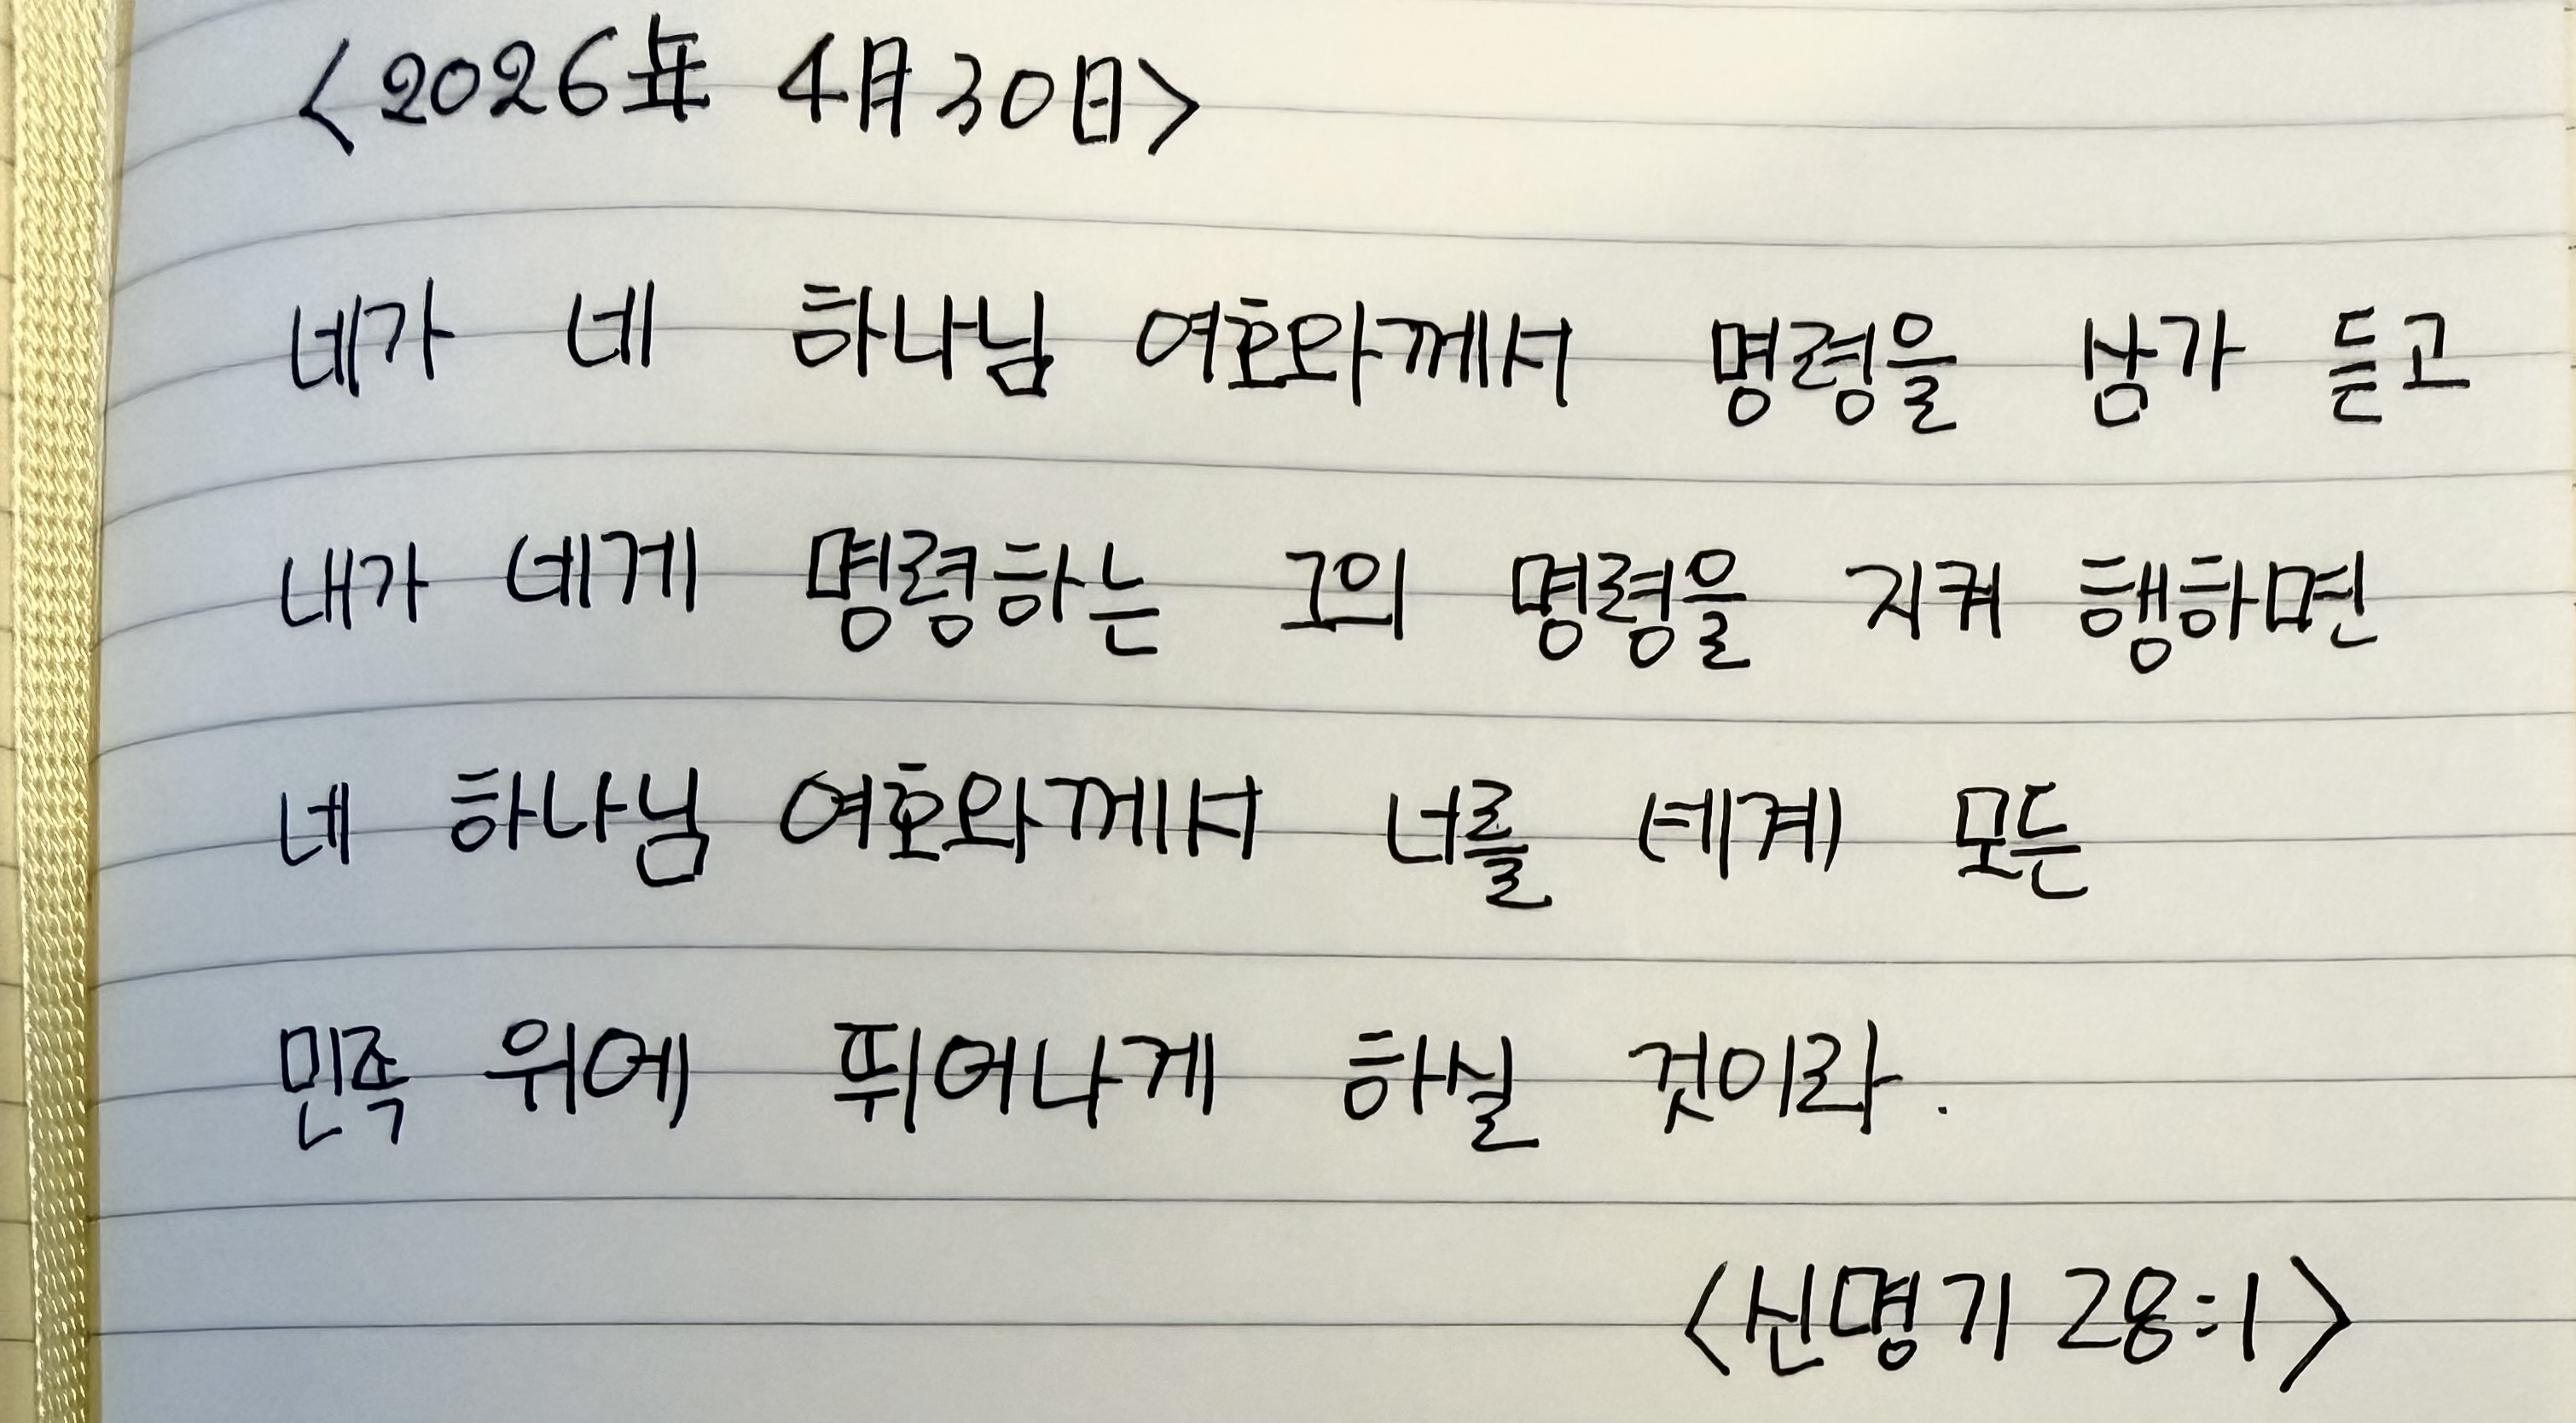 <2026年 4月30日>
네가 네 하나님 여호와께서 명령을 삼가 듣고
내가 네게 명령하는 그의 명령을 지켜 행하면
네 하나님 여호와께서 너를 세계 모든
민족 위에 뛰어나게 하실 것이라.
<신명기 28:1>